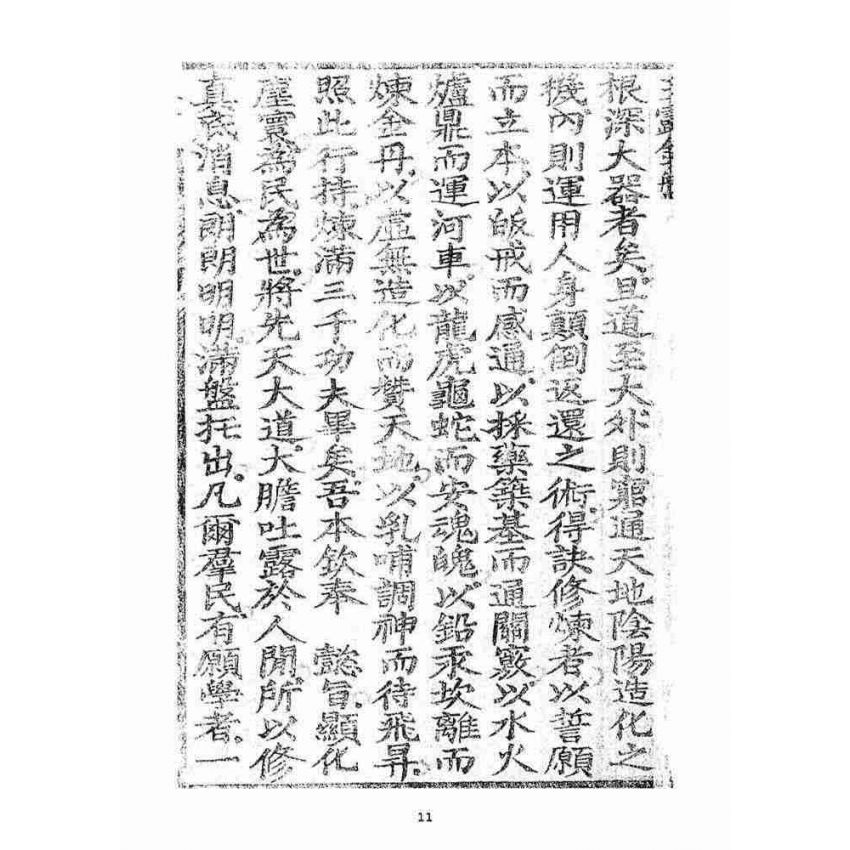 玉露金盤
根深大器者矣。且道至大外則窮通天地陰陽造化之
機內則運用人身顛倒返還之術。得訣修煉者以誓願
而立本。以皈戒而感通。以採藥築基而通關竅。以水火
爐鼎而運河車。以龍虎龜蛇而安魂魄。以鉛汞坎離而
煉金丹。以虛無造化而贊天地。以乳哺調神而待飛昇。
照此行持煉滿三千功夫畢矣。吾本欽奉　懿旨。顯化
塵寰為民為世。將先天大道。大膽吐露於人間。所以修
真底消息。朗朗明明。滿盤托出。凡爾羣民。有願學者。一
11